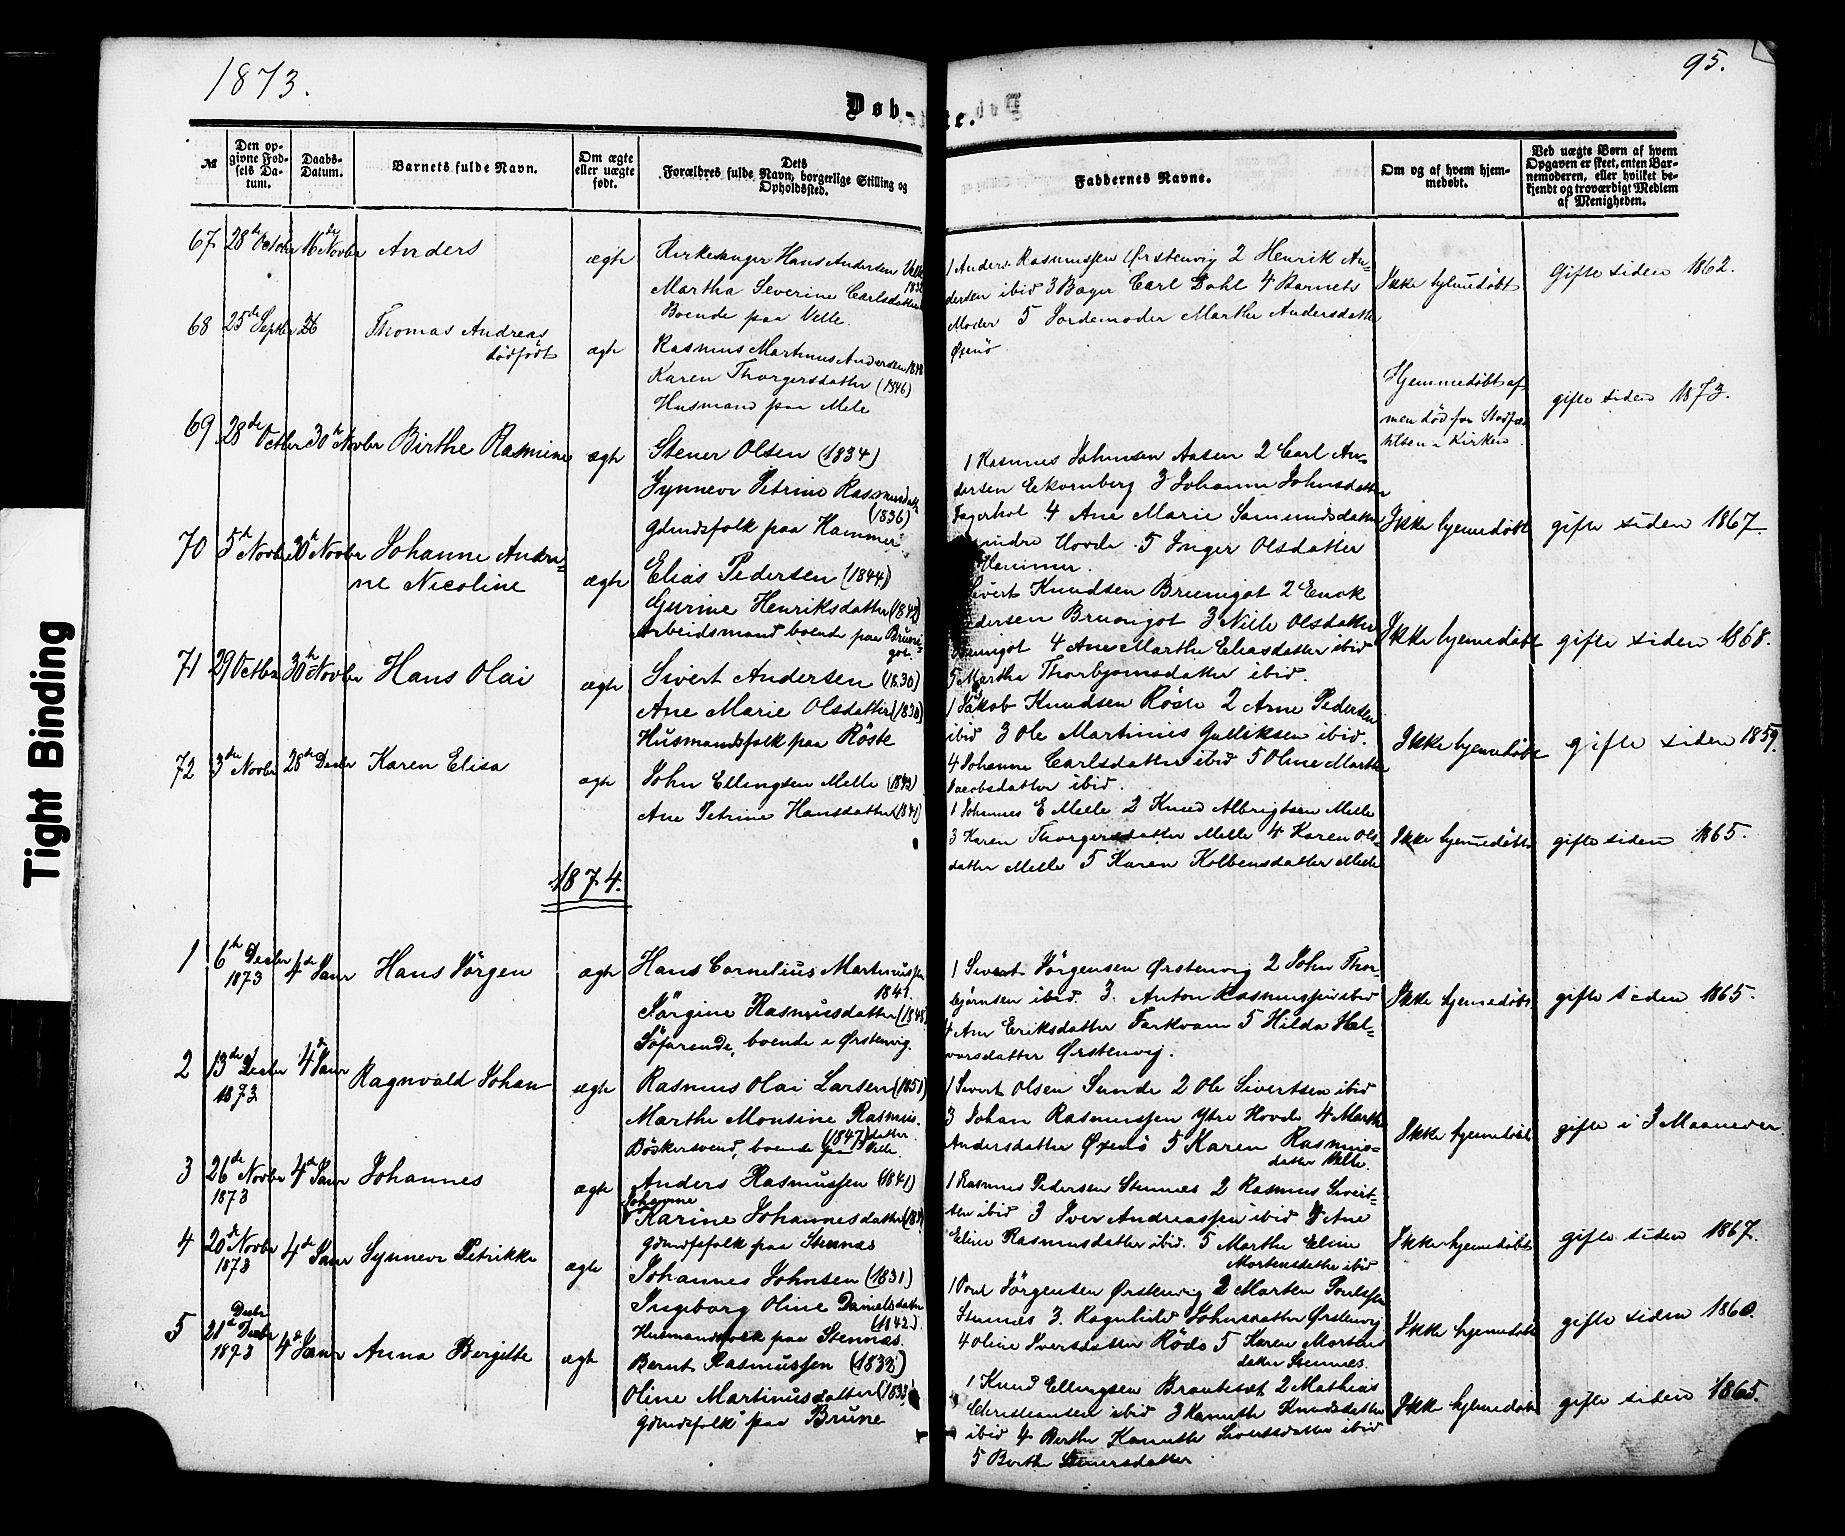 1873.
95.
Døb-
te.
Tight Binding
№
Den op-
givne Fød-
sels Da-
tum.
Daabs-
Datum.
Barnets fulde Navn.
Om ægte
eller uægte
født.
Dets
Forældres fulde Navn, borgerlige Stilling og
Opholdssted.
Faddernes Navne.
Om og af hvem hjem-
medøbt.
Ved uægte Børn af hvem
Opgaven er skeet, enten Bar-
nemoderen, eller hvilket be-
kjendt og troværdigt Medlem
af Menigheden.
67
28de Octobr
16de Novbr
Anders
ægte
Kirkesanger Hans Andersen Velle
Martha Severine Carlsdatter
Boende paa Velle.
1 Anders Rasmussen Ørstenvig 2 Henrik An-
dersen ibid 3 Bager Carl Dahl 4 Barnets
Moder 5 Jordemoder Marthe Andersdatter
Øxnø
Ikke hjemmedøbt
Gifte siden 1862.
68
25de Septbr
26
Thomas Andreas
dødfødt
ægte
Rasmus Martinus Andersen
Karen Thorgersdatter (1846)
Husmand paa Mele
Hjemmedøbt af
men død før Stadfæ-
stelsen i Kirken.
gifte siden 1873.
69
28de Octbr
30te Novbr
Birthe Rasmine
ægte
Stener Olsen (1834)
Synneve Petrine Rasmusdatter
(1836)
Gdmdsfolk paa Hammer
1 Rasmus Johnsen Aasen 2 Carl An-
dersen Ekornberg 3 Johanne Johnsdatter
Fagerhol 4 Ane Marie Samundsdatter
indre Hovde 5 Inger Olsdatter
Hammer.
Ikke hjemmedøbt
gifte siden 1867.
70
5te Novbr
30te Novbr
Johanne Andri-
ne Nicoline
ægte
Elias Pedersen (1844)
Gurine Henriksdatter (1842)
Arbeidsmand boende paa Bruni-
got.
Sivert Knudsen Brunigot 2 Enok
Pedersen Brunigot 3 Nille Olsdatter
Brunigot 4 Ane Marthe Eliasdatter ibid
5 Martha Thorbjørnsdatter ibid.
Ikke hjemmedøbt
gifte siden 1868.
71
29 Octbr
30te Novbr
Hans Olai
ægte
Sivert Andersen (1830)
Ane Marie Olsdatter (1830)
Husmandsfolk paa Røste
1 Jakob Knudsen Røste 2 Arne Pedersen
ibid 3 Ole Martinus Gulliksen ibid.
4 Johanne Carlsdatter ibid 5 Oline Marthe
Jacobsdatter ibid.
Ikke hjemmedøbt
gifte siden 1859.
72
3die Novbr
28de Decbr
Karen Elisa
ægte
John Ellingsen Melle
Ane Petrine Hansdatter (1841)
1 Johannes E Melle 2 Knud Albrigtsen Melle
3 Karen Thorgersdatter Melle 4 Karen Ols-
datter Melle 5 Karen Kolbensdatter Melle
Ikke hjemmedøbt
gifte siden 1865.
1874.
1
6te Decbr
1873
4de Janr
Hans Jörgen
ægte
Hans Cornelius Martinussen
1841.
Jörgine Rasmusdatter
Söfarende, boende i Ørstenvig.
1 Sivert Jörgensen Ørstenvig 2 John Thor-
bjørnsen ibid. 3. Anton Rasmussen ibid
4 Ane Eriksdatter Farkvam 5 Hilda Hal-
vorsdatter Ørstenvig.
Ikke hjemmedøbt
gifte siden 1865.
2
13de Decbr
1873
4de Janr
Ragnvald Johan
ægte
Rasmus Olai Larsen (1851)
Marthe Monsine Rasmus-
(1847) datter
Bökersvend, boende paa Velle.
1 Sivert Olsen Sunde 2 Ole Sivertsen ibid
3 Johan Rasmussen Ytre Hovde 4 Marthe
Andersdatter Øxnø 5 Karen Rasmus-
datter Velle.
Ikke hjemmedøbt
gifte i 3 Maaneder.
3
26de Novbr
1873
4de Janr
Johannes
ægte
Anders Rasmussen (1841)
Johanne
Karine Johannesdatter
Gdmdsfolk paa Stennæs
1 Rasmus Pedersen Stennæs 2 Rasmus Sivert-
sen ibid 3 Iver Andreassen ibid 4 Ane
Eline Rasmusdatter ibid. 5 Marthe Eline
Mortensdatter ibid
Ikke hjemmedøbt
gifte siden 1867.
4
20de Novbr
1873
4de Janr
Synneve Petrikke
ægte
Johannes Johnsen (1831)
Ingeborg Oline Danielsdatter
(1842)
Husmandsfolk paa Stennæs.
1 Poul Jörgensen Ørstenvig 2 Morten Poulsen
Stennæs 3. Ragnhild Johnsdatter Ørstenvig
4 Oline Iversdatter Rödø 5 Karen Mortens
datter Stennæs.
Ikke hjemmedøbt
gifte siden 1860.
5
Decbr
21de Decbr
1873
4de Janr
Anna Bergitte
ægte
Bernt Rasmussen (1832)
Oline Martinusdatter
Gdmdsfolk paa Brune
1 Knud Ellingsen Brautesæt 2 Mathias
Christiansen ibid 3 Hanseth Knudsdatter
ibid 4 Berthe Hanseth Sivertsdatter ibid
5 Berthe Stenersdatter
Ikke hjemmedøbt
gifte siden 1865.